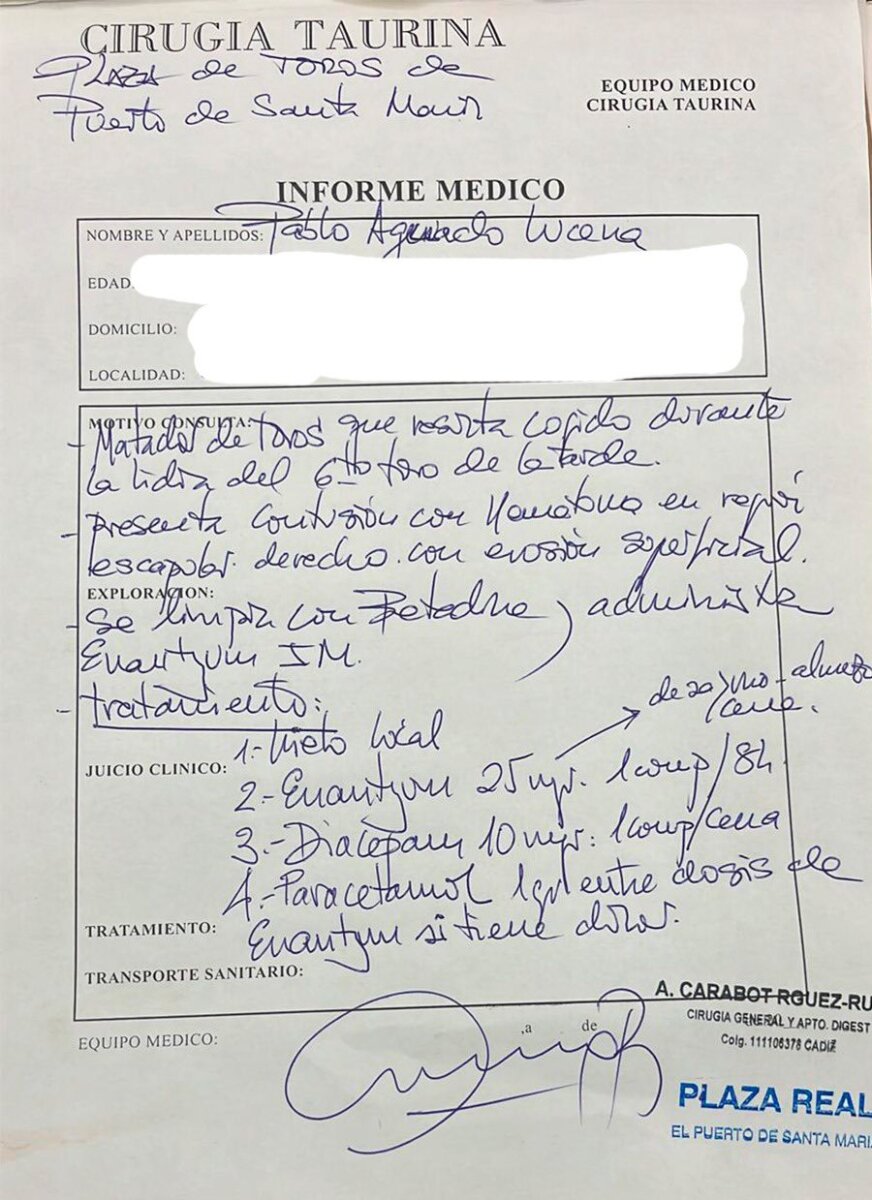 CIRUGIA TAURINA
PLAZA de TOROS de
Puerto de Santa María
EQUIPO MEDICO
CIRUGIA TAURINA
INFORME MEDICO
NOMBRE Y APELLIDOS: Pablo Aguado Lucena
EDAD
DOMICILIO:
LOCALIDAD:
MOTIVO CONSULTA:
- Matador de toros que resulta cogido durante
la lidia del 6to toro de la tarde.
- presenta contusión con Hematoma en región
escapular derecho con erosión superficial.
EXPLORACION:
- Se limpia con Betadine y administra
Enantyum IM.
- tratamiento:
desayuno-almuerzo
/cena.
1.- Hielo local
JUICIO CLINICO:
2.- Enantyum 25 mgr. 1 comp/8h
3.- Diacepam 10 mgr: 1 comp/cena
4.- Paracetamol 1gr entre dosis de
TRATAMIENTO: Enantyum si tiene dolor.
TRANSPORTE SANITARIO:
A. CARABOT RGUEZ-RU
CIRUGIA GENERAL Y APTO. DIGEST
Colg. 111106378 CADIZ
EQUIPO MEDICO: ,a de
PLAZA REAL
EL PUERTO DE SANTA MARIA